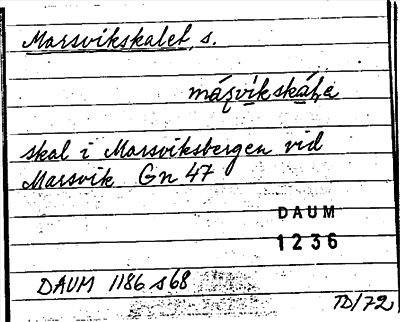 Marsvikskalet, s.
skal i Marsviksbergen vid
Marsvik Gn 47
DAUM
1236
DAUM 1186 s68
TD/72